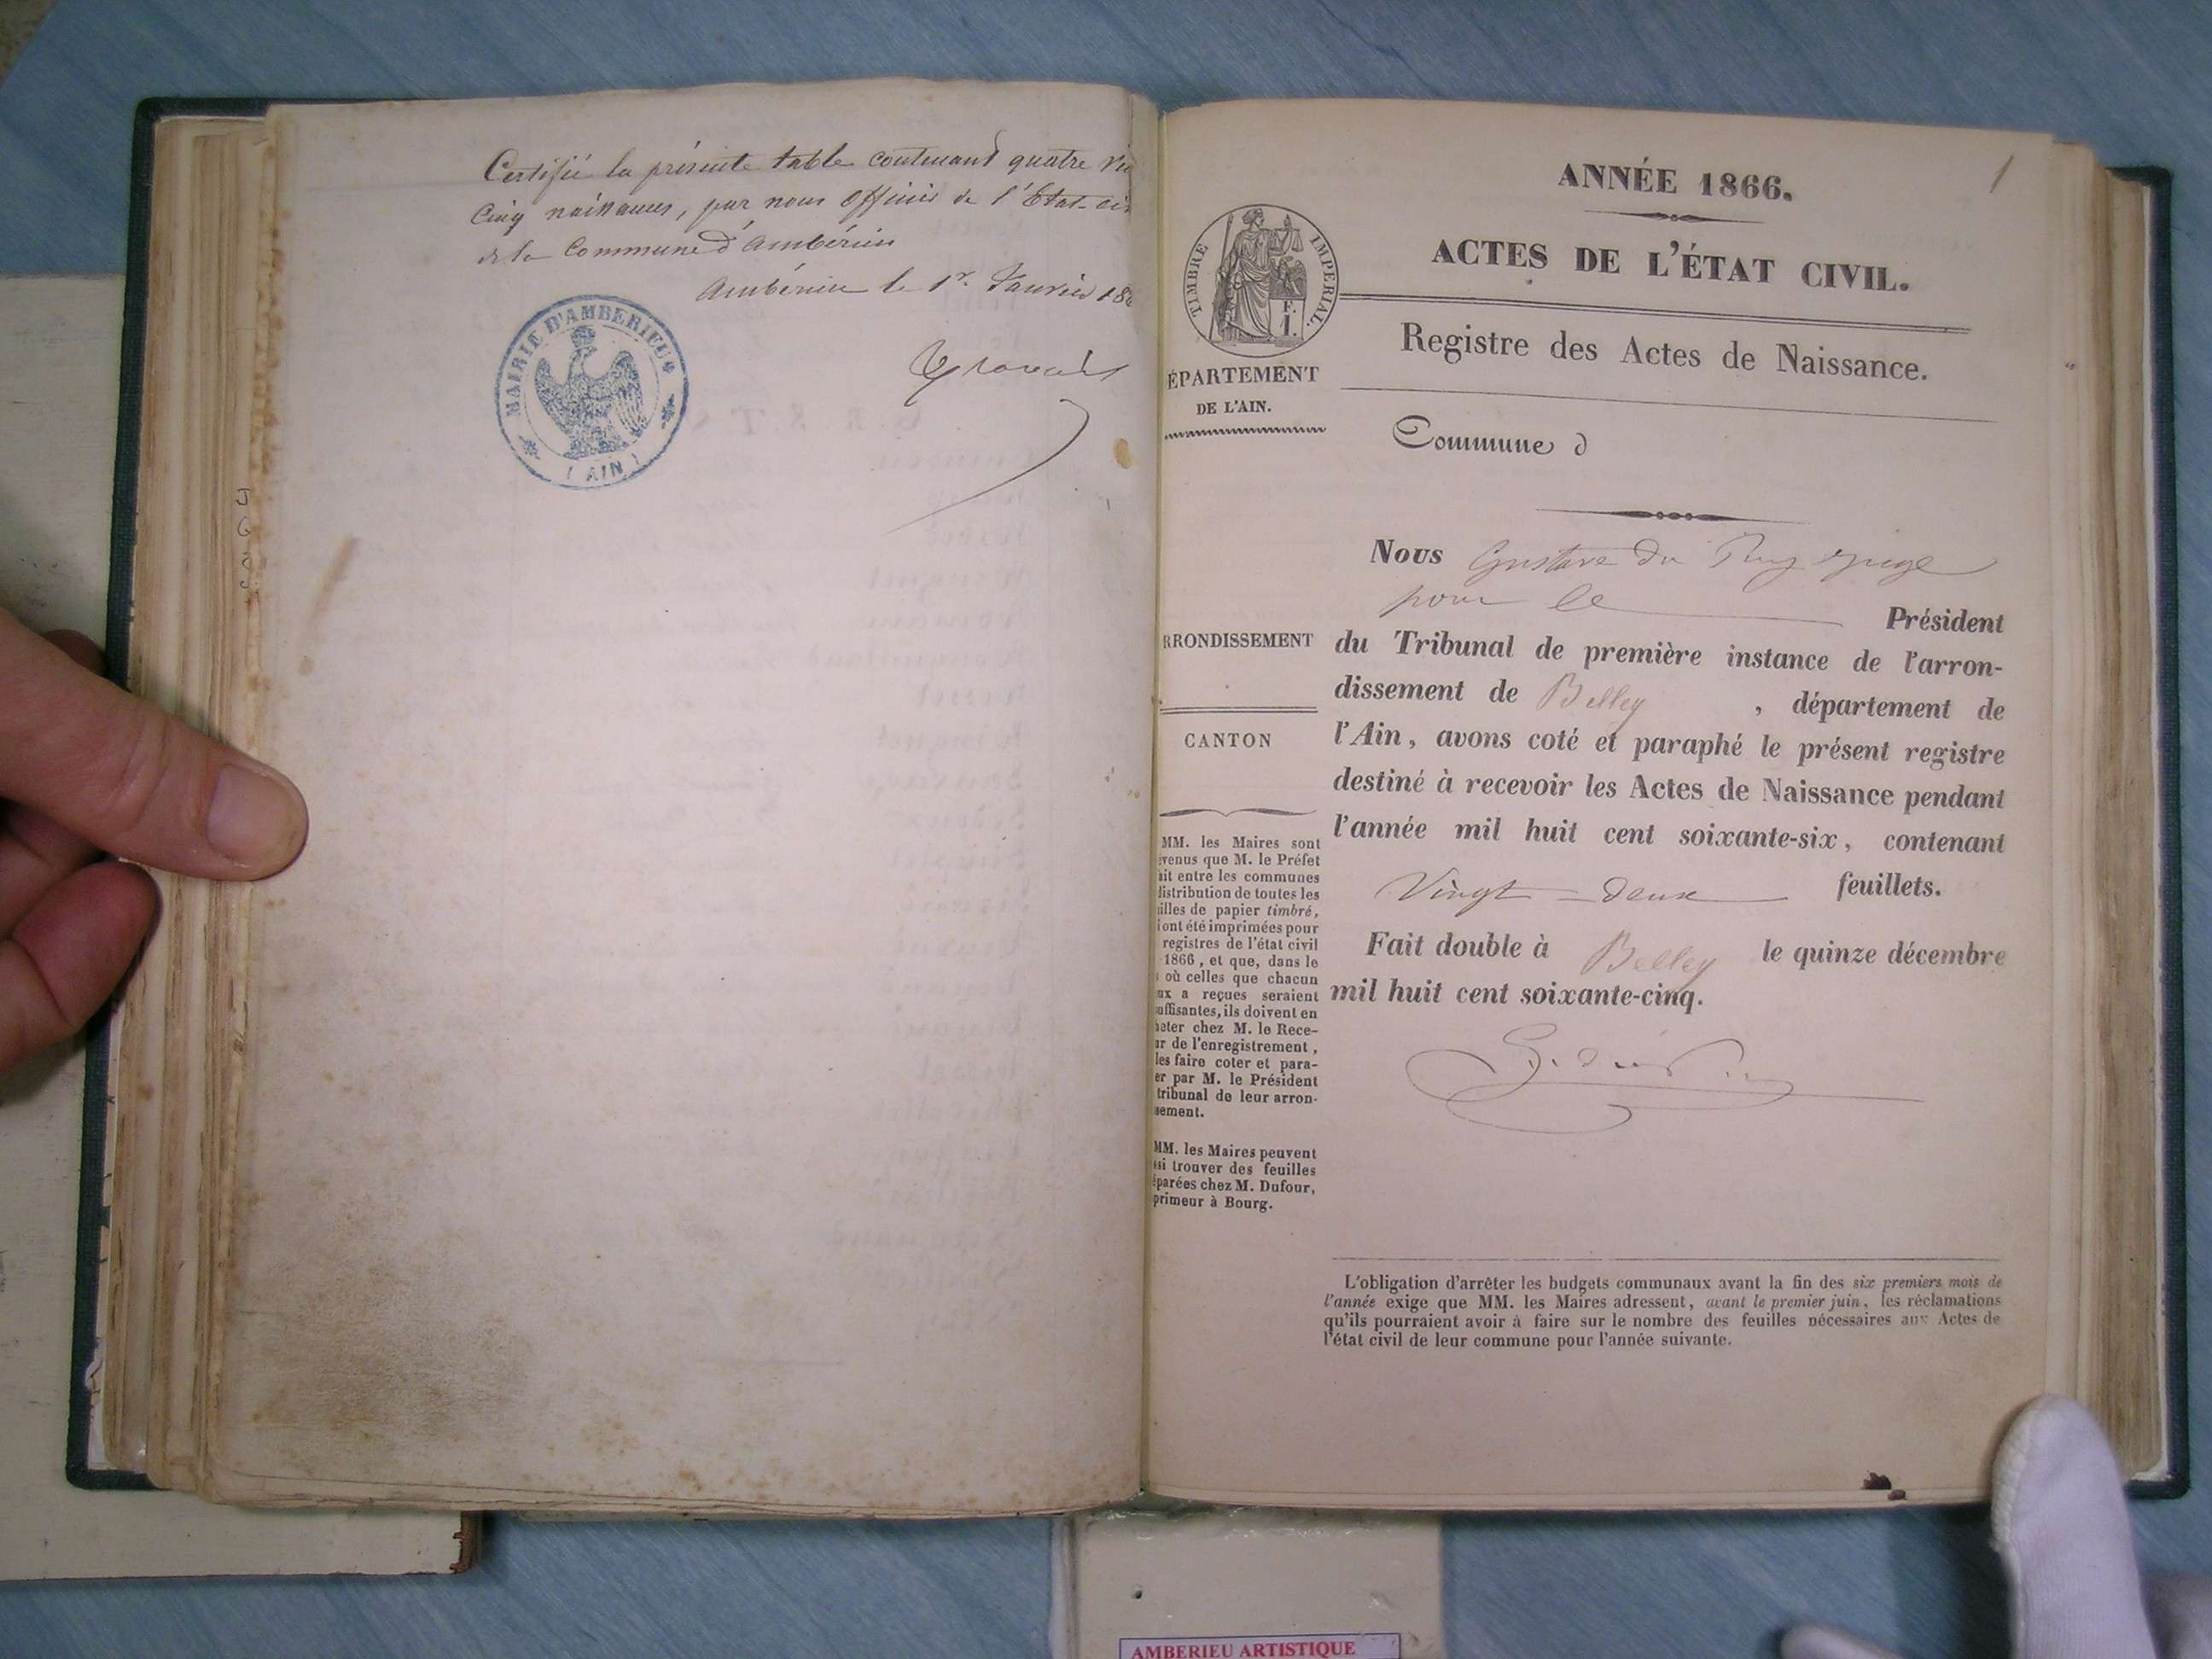 Certifié la présente table contenant quatre
Cinq naissances, par nous Officier de l'Etat-
de la Commune d'Ambérieu
Ambérieu le 1er Janvier
MAIRIE D'AMBERIEU
(AIN)
1
ANNÉE 1866.
ACTES DE L'ÉTAT CIVIL.
TIMBRE IMPERIAL.
F.
I.
Registre des Actes de Naissance.
ÉPARTEMENT
DE L'AIN.
Commune d
Nous Gustave du Puy Juge
pour le Président
RRONDISSEMENT
du Tribunal de première instance de l'arron-
dissement de Belley , département de
CANTON
l'Ain, avons coté et paraphé le présent registre
destiné à recevoir les Actes de Naissance pendant
l'année mil huit cent soixante-six, contenant
Vingt-deux feuillets.
Fait double à Belley le quinze décembre
mil huit cent soixante-cinq.
MM. les Maires sont
venus que M. le Préfet
ait entre les communes
distribution de toutes les
illes de papier timbré,
ont été imprimées pour
registres de l'état civil
1866, et que, dans le
où celles que chacun
ux a reçues seraient
uffisantes, ils doivent en
heter chez M. le Rece-
ur de l'enregistrement,
les faire coter et para-
er par M. le Président
tribunal de leur arron-
sement.
MM. les Maires peuvent
ssi trouver des feuilles
éparées chez M. Dufour,
primeur à Bourg.
L'obligation d'arrêter les budgets communaux avant la fin des six premiers mois de
l'année exige que MM. les Maires adressent, avant le premier juin, les réclamations
qu'ils pourraient avoir à faire sur le nombre des feuilles nécessaires aux Actes de
l'état civil de leur commune pour l'année suivante.
AMBERIEU ARTISTIQUE